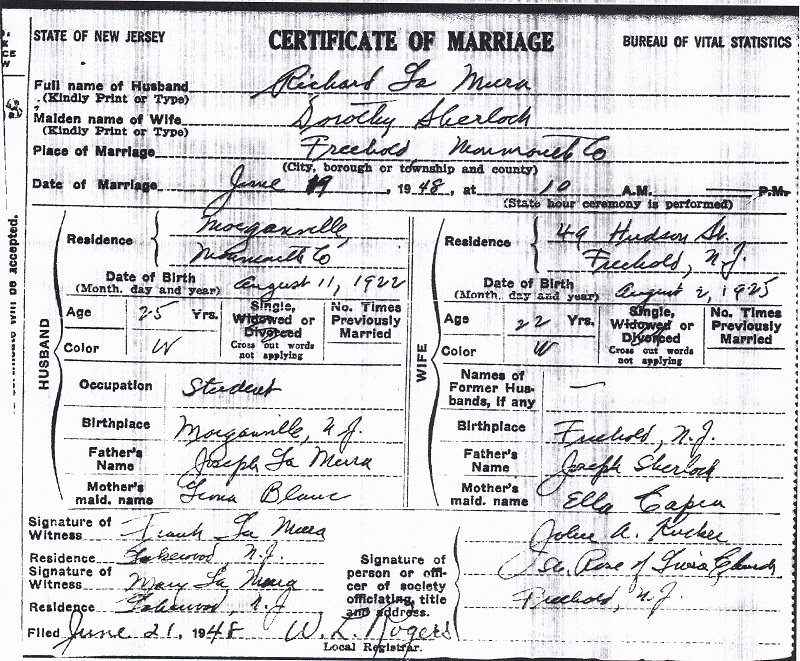 STATE OF NEW JERSEY CERTIFICATE OF MARRIAGE BUREAU OF VITAL STATISTICS
Full name of Husband Richard La Mura
(Kindly Print or Type)
Maiden name of Wife Dorothy Sherlock
(Kindly Print or Type)
Place of Marriage Freehold Monmouth Co
(City, borough or township and county)
Date of Marriage June 19, 1948, at 10 A.M. P.M.
(State hour ceremony is performed)
HUSBAND
Residence Morganville,
Monmouth Co
Date of Birth August 11, 1922
(Month, day and year)
Age 25 Yrs. Single, Widowed or Divorced No. Times Previously Married
Color W Cross out words not applying
Occupation Student
Birthplace Morganville, N.J.
Father's Name Joseph La Mura
Mother's maid. name Blanc
WIFE
Residence 49 Hudson St.
Freehold, N.J.
Date of Birth August 2, 1925
(Month, day and year)
Age 22 Yrs. Single, Widowed or Divorced No. Times Previously Married
Color W Cross out words not applying
Names of Former Husbands, if any —
Birthplace Freehold, N.J.
Father's Name Joseph Sherlock
Mother's maid. name Ella
Signature of Witness Frank La Mura
Residence Lakewood N.J.
Signature of Witness Mary La Mura
Residence Lakewood, N.J.
Signature of person or officer of society officiating, title and address.
John A.
St. Rose of Lima Church
Freehold, N.J.
Filed June 21, 1948 W. L. Rogers
Local Registrar.
will be accepted.